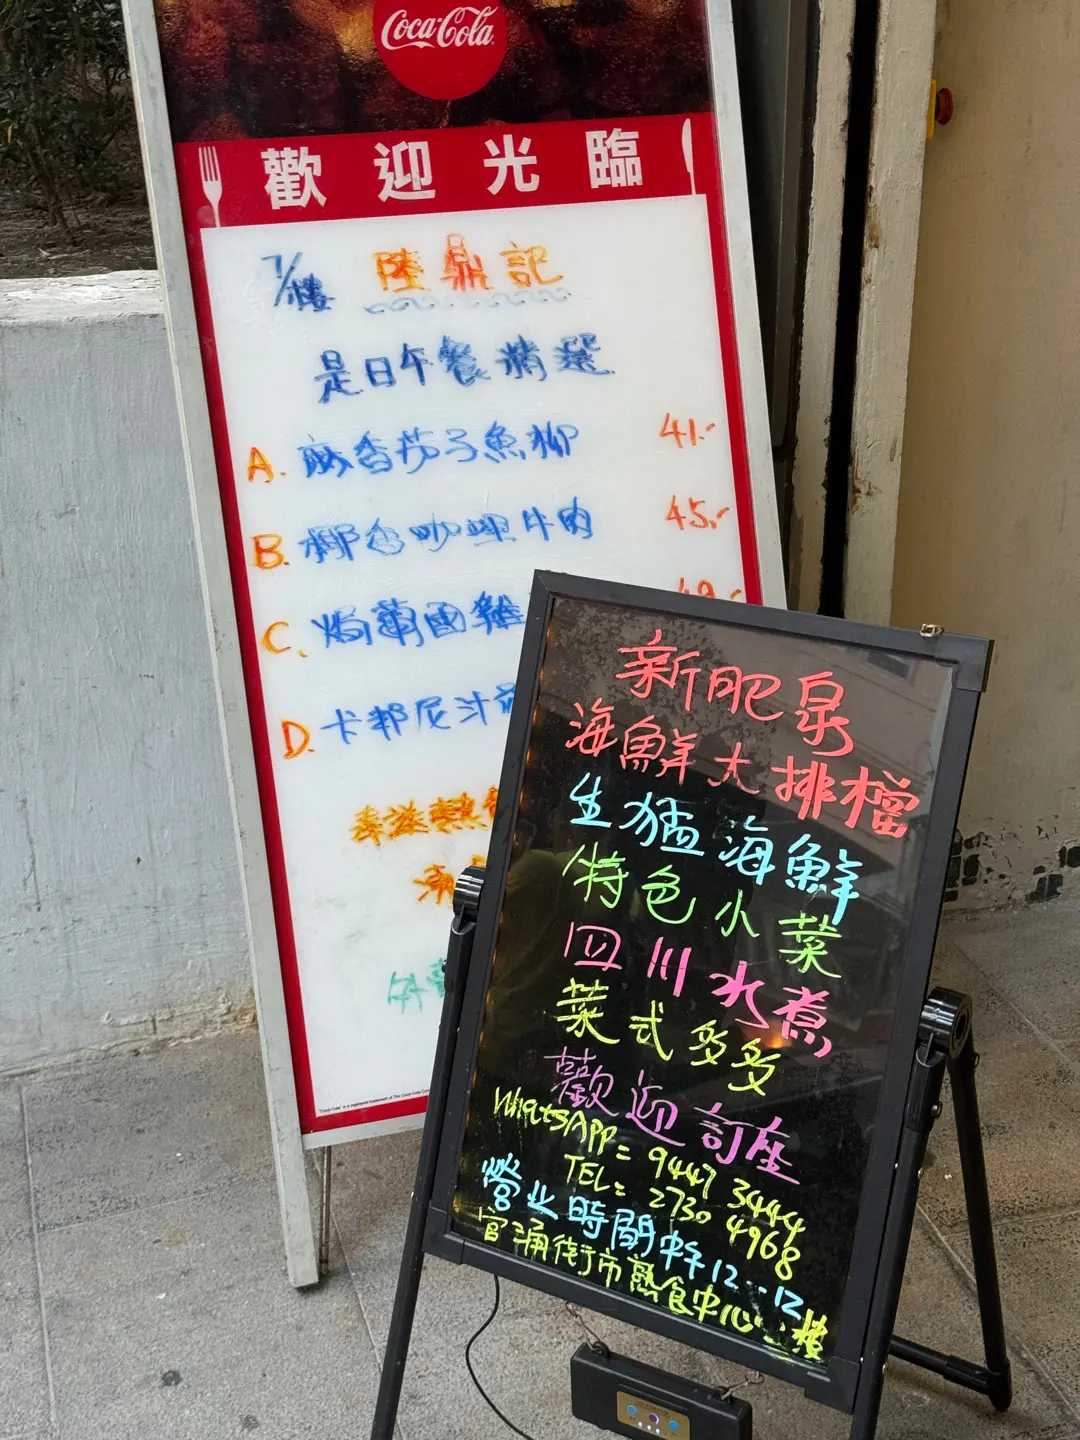 Coca-Cola
歡迎光臨
7/樓 陸鼎記
是日午餐精選
A. 麻香茄子魚柳 41.-
B. 椰香咖喱牛肉 45.-
C. 焗葡國雞
D. 卡邦尼汁
香滋熱
外賣
新肥泉
海鮮大排檔
生猛海鮮
特色小菜
四川水煮
菜式多多
歡迎訂座
WhatsAPP= 9447 3444
TEL= 2730 4968
營业時間中午12...12
官涌街市熟食中心